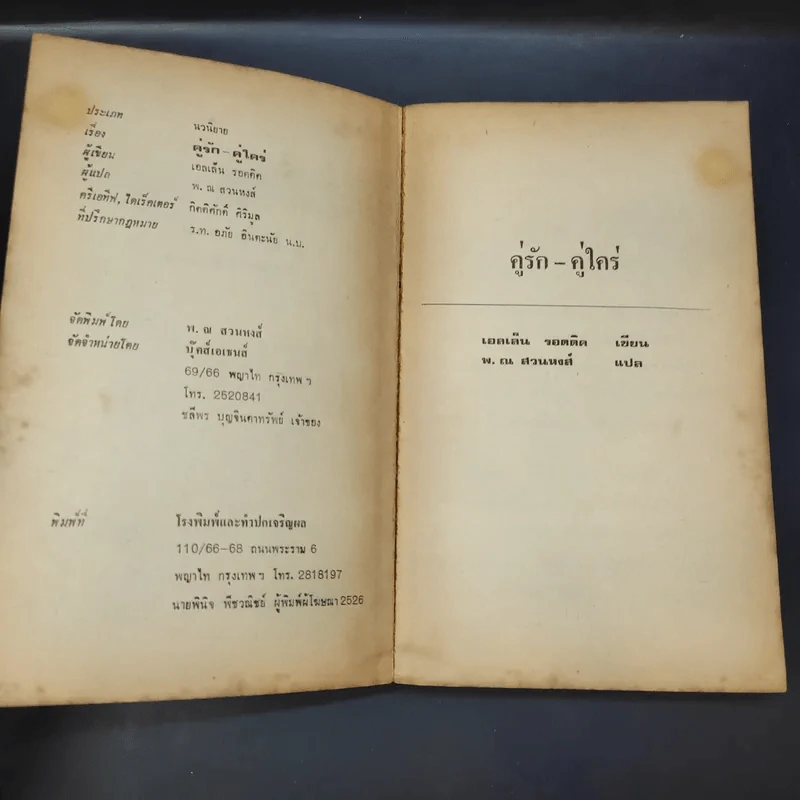 ประเภท นวนิยาย
เรื่อง คู่รัก – คู่ใคร่
ผู้เขียน เอลเล็น รอตติค
ผู้แปล พ. ณ สวนหงส์
ครีเอทีฟ, ไดเร็คเตอร์ กิตติศักดิ์ ศิริมูล
ที่ปรึกษากฎหมาย ร.ท. อภัย อินตะนัย น.บ.
จัดพิมพ์โดย พ. ณ สวนหงส์
จัดจำหน่ายโดย บุ๊คส์เอเธนส์
69/66 พญาไท กรุงเทพ ฯ
โทร. 2520841
ชลีพร บุญจินดาทรัพย์ เจ้าของ
พิมพ์ที่ โรงพิมพ์และทำปกเจริญผล
110/66-68 ถนนพระราม 6
พญาไท กรุงเทพ ฯ โทร. 2818197
นายพินิจ พืชวณิชย์ ผู้พิมพ์ผู้โฆษณา 2526
คู่รัก – คู่ใคร่
เอลเล็น รอตติค เขียน
พ. ณ สวนหงส์ แปล